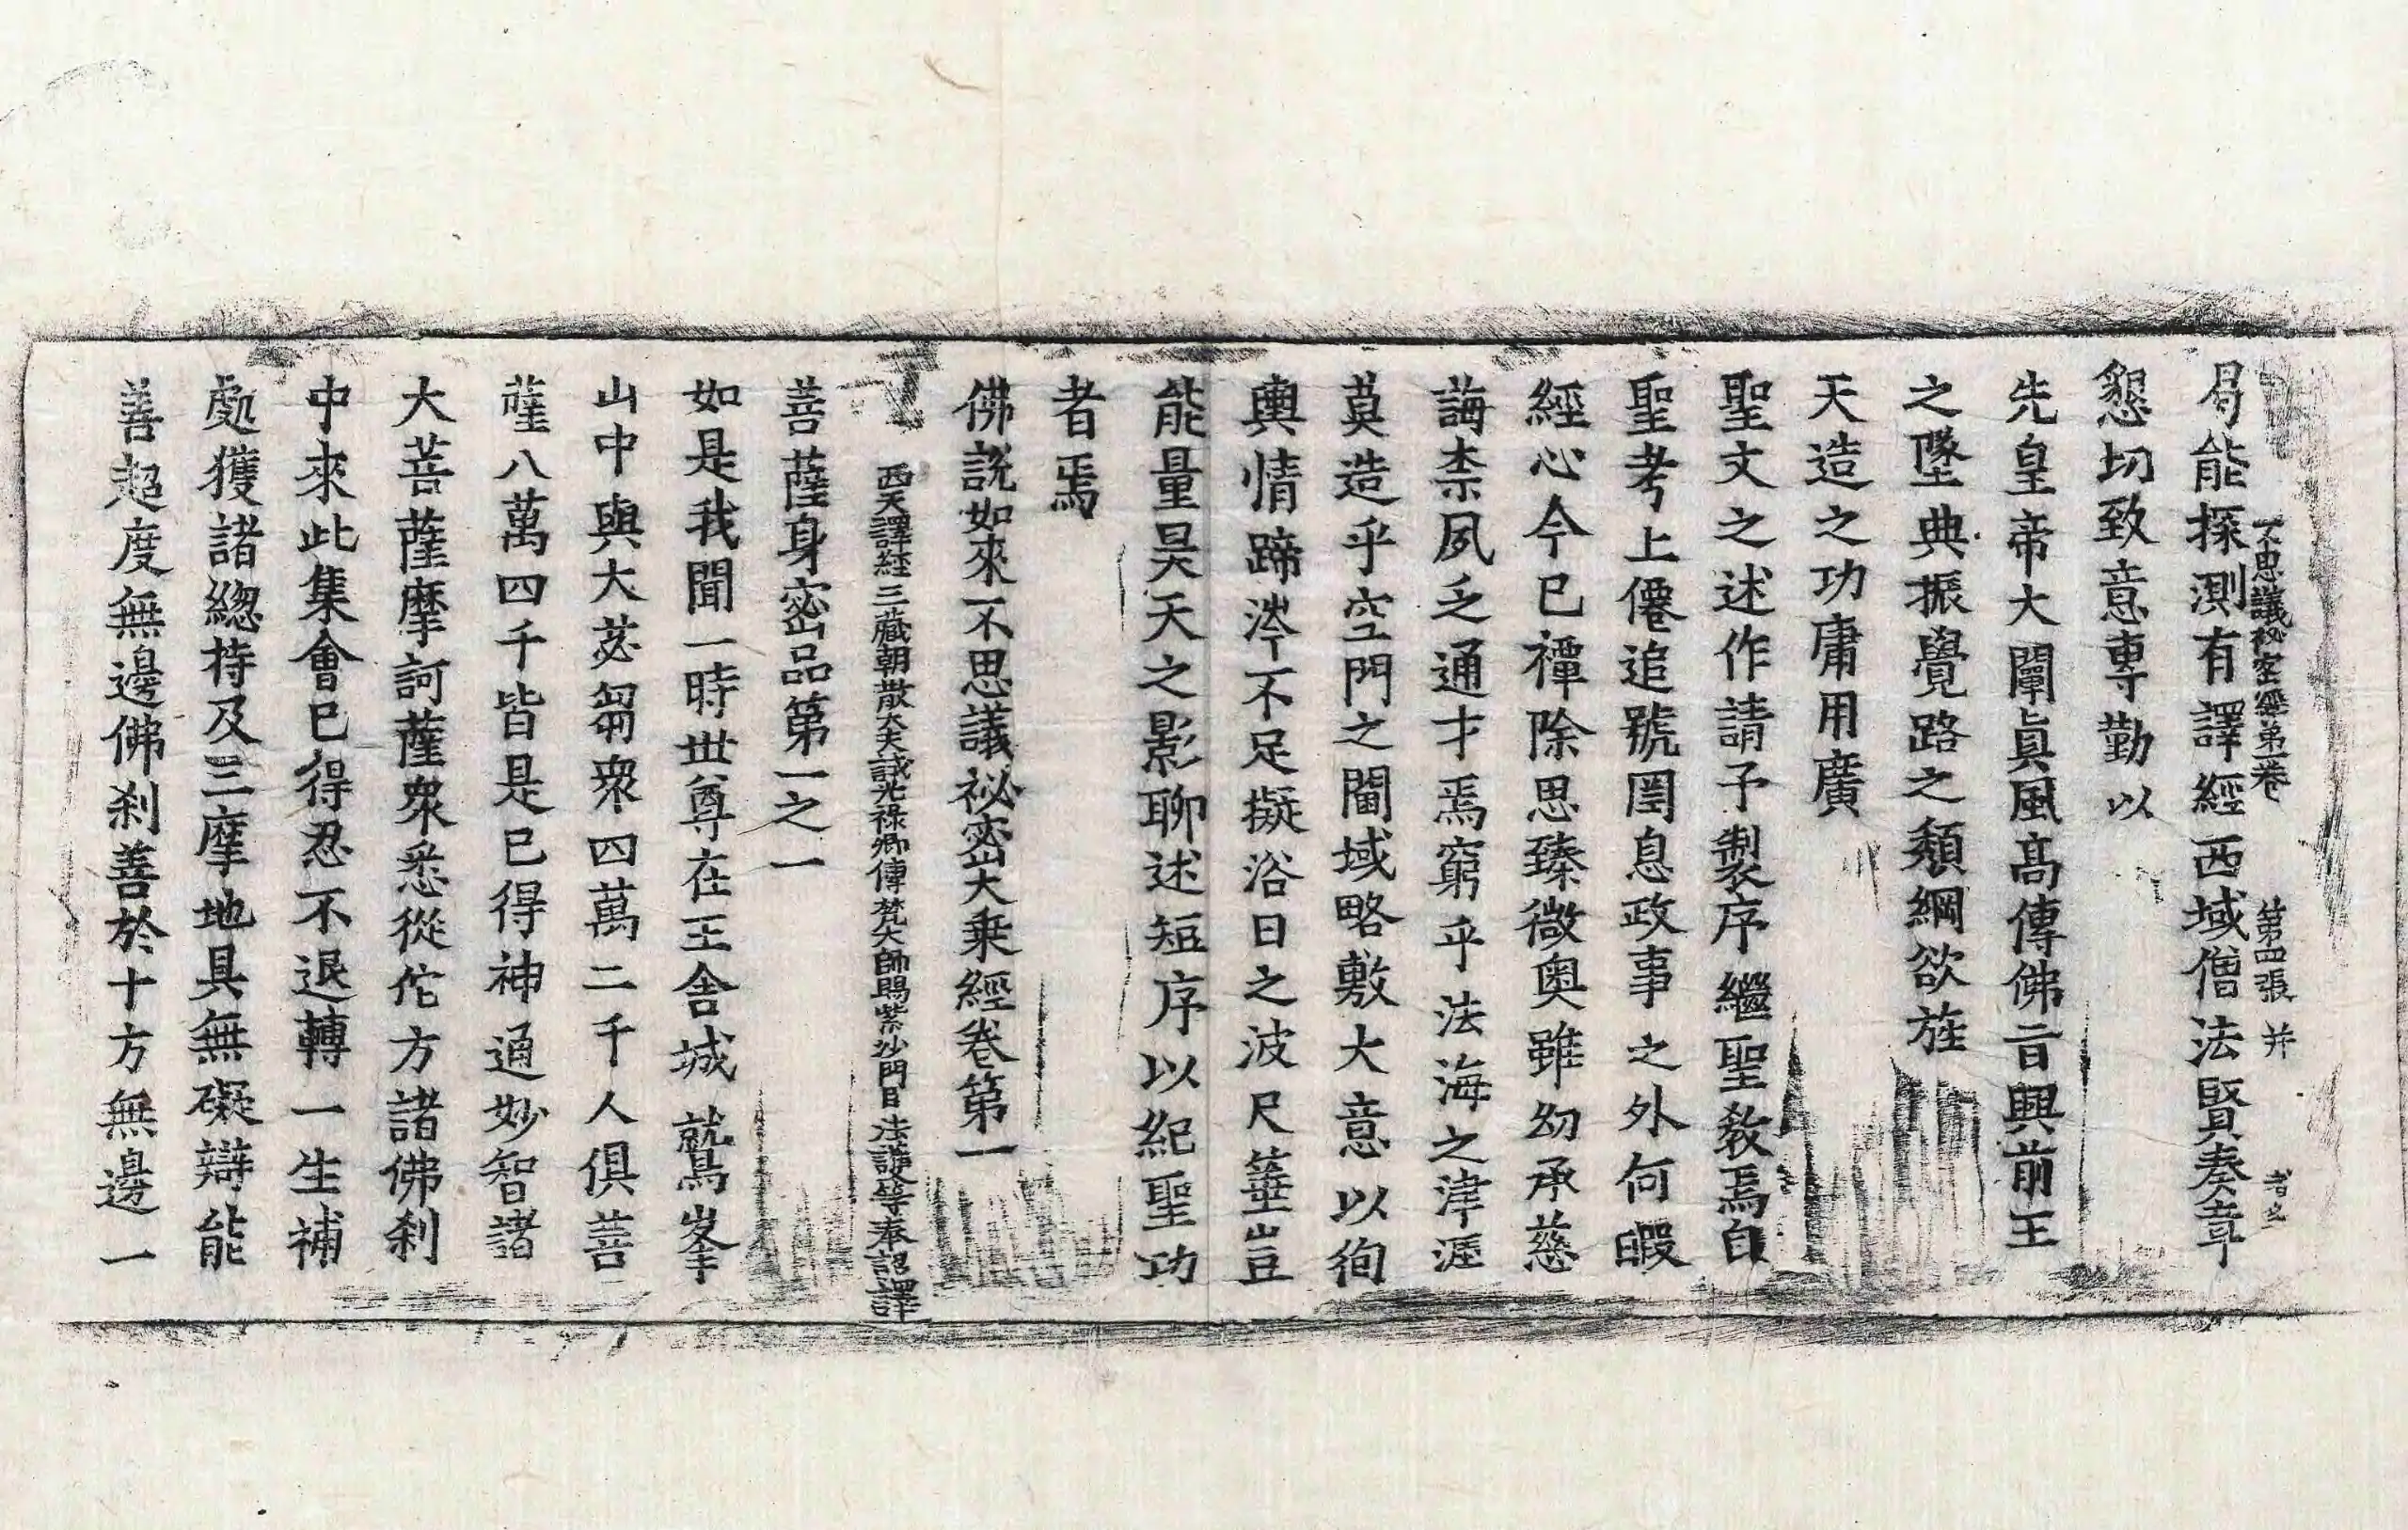 不思議祕密經第一卷 第四張 并
曷能探測有譯經西域僧法賢奏章
懇切致意專勤以
先皇帝大闡眞風高傳佛旨興前王
之墜典振覺路之頹綱欲旌
天造之功庸用廣
聖文之述作請予製序繼聖教焉自
聖考上僊追號罔息政事之外何暇
經心今已禫除思臻微奧雖幼承慈
誨柰夙乏通才焉窮乎法海之津涯
莫造乎空門之閫域略敷大意以徇
輿情蹄涔不足擬浴日之波尺箠豈
能量昊天之影聊述短序以紀聖功
者焉
佛說如來不思議祕密大乘經卷第一
西天譯經三藏朝散大夫試光祿卿傳梵大師賜紫沙門臣法護等奉詔譯
菩薩身密品第一之一
如是我聞一時世尊在王舍城鷲峯
山中與大苾芻衆四萬二千人俱菩
薩八萬四千皆是已得神通妙智諸
大菩薩摩訶薩衆悉從佗方諸佛刹
中來此集會已得忍不退轉一生補
處獲諸緫持及三摩地具無礙辯能
善超度無邊佛刹善於十方無邊一